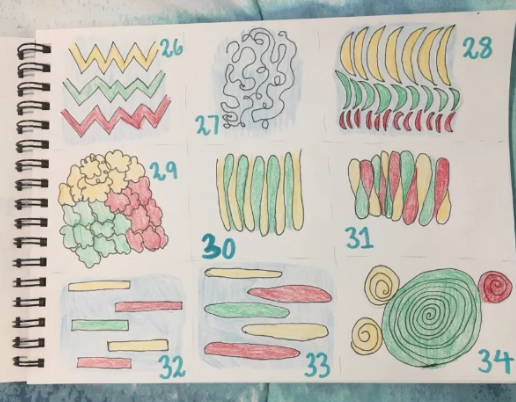 26
27
28
29
30
31
32
33
34